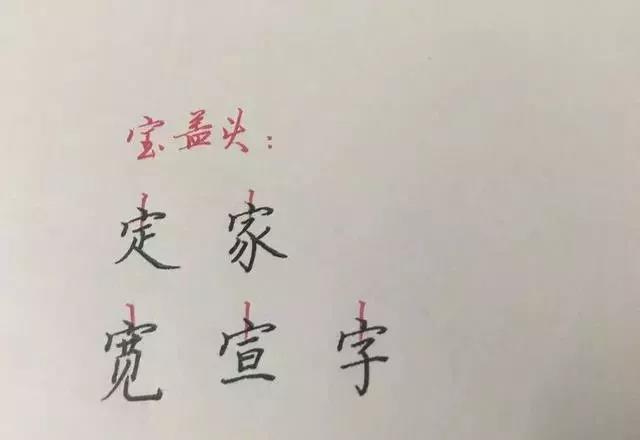 宝盖头：
定 家
宽 宣 字